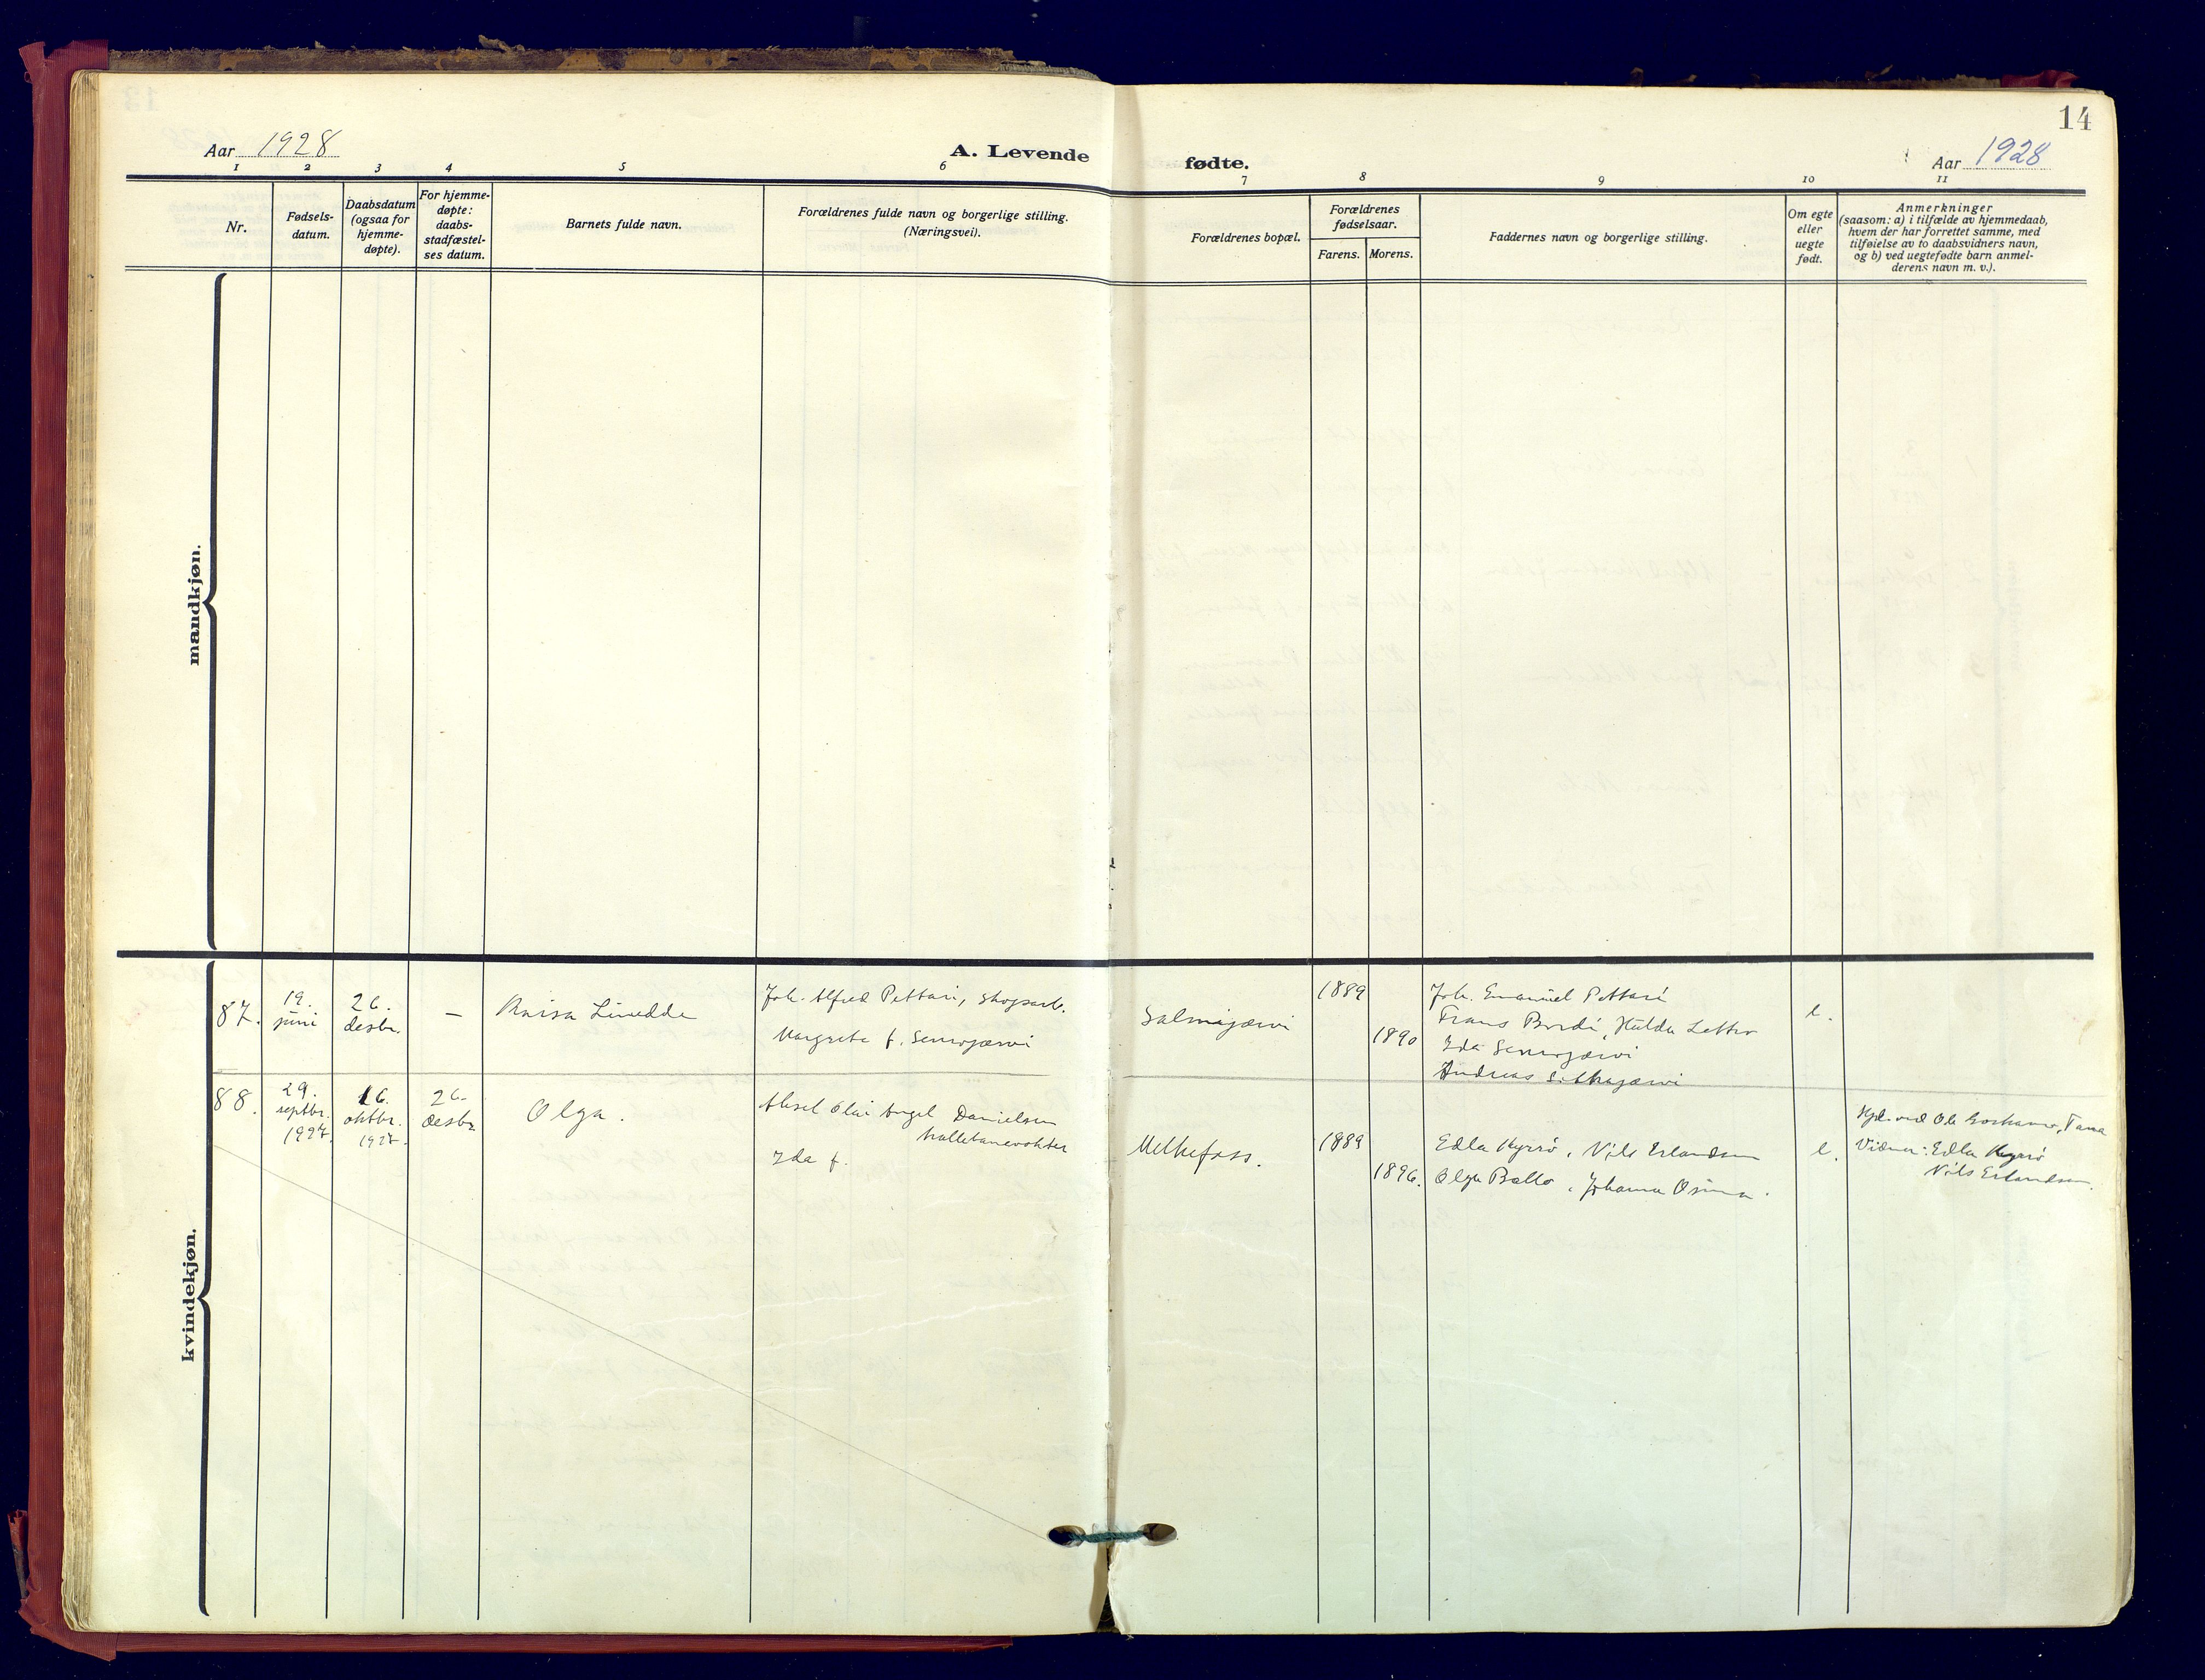 14
Aar 1928
A. Levende fødte.
Aar 1928
1 2 3 4 5 6 7 8 9 10 11
Nr.
Fødsels-
datum.
Daabsdatum
(ogsaa for
hjemme-
døpte).
For hjemme-
døpte:
daabs-
stadfæstel-
ses datum.
Barnets fulde navn.
Forældrenes fulde navn og borgerlige stilling.
(Næringsvei).
Forældrenes bopæl.
Forældrenes
fødselsaar.
Farens. Morens.
Faddernes navn og borgerlige stilling.
Om egte
eller
uegte
født.
Anmerkninger
(saasom: a) i tilfælde av hjemmedaab,
hvem der har forrettet samme, med
tilføielse av to daabsvidners navn,
og b) ved uegtefødte barn anmel-
derens navn m. v.).
mandkjøn.
kvindekjøn.
87.
19.
juni
26.
desbr.
—
Raisa
Joh. Alfred Pettari, skogsarb.
Margrete f.
Salmijærvi
1889
1890
Joh. Emanuel Pettari
Frans Hulda
Ida
Andreas
e.
88.
29.
septbr.
1927.
16.
oktbr.
1927.
26.
desbr.
Olga.
Aksel Olai Angel Danielsen
trallebanevokter
Ida f.
Melkefoss.
1889
1896.
Edla Kyrrö, Nils Erlandsen
Olga Ballo, Johanna
e.
Hjd. ved Ole Tana
Vidner: Edla Kyrrö
Nils Erlandsen.